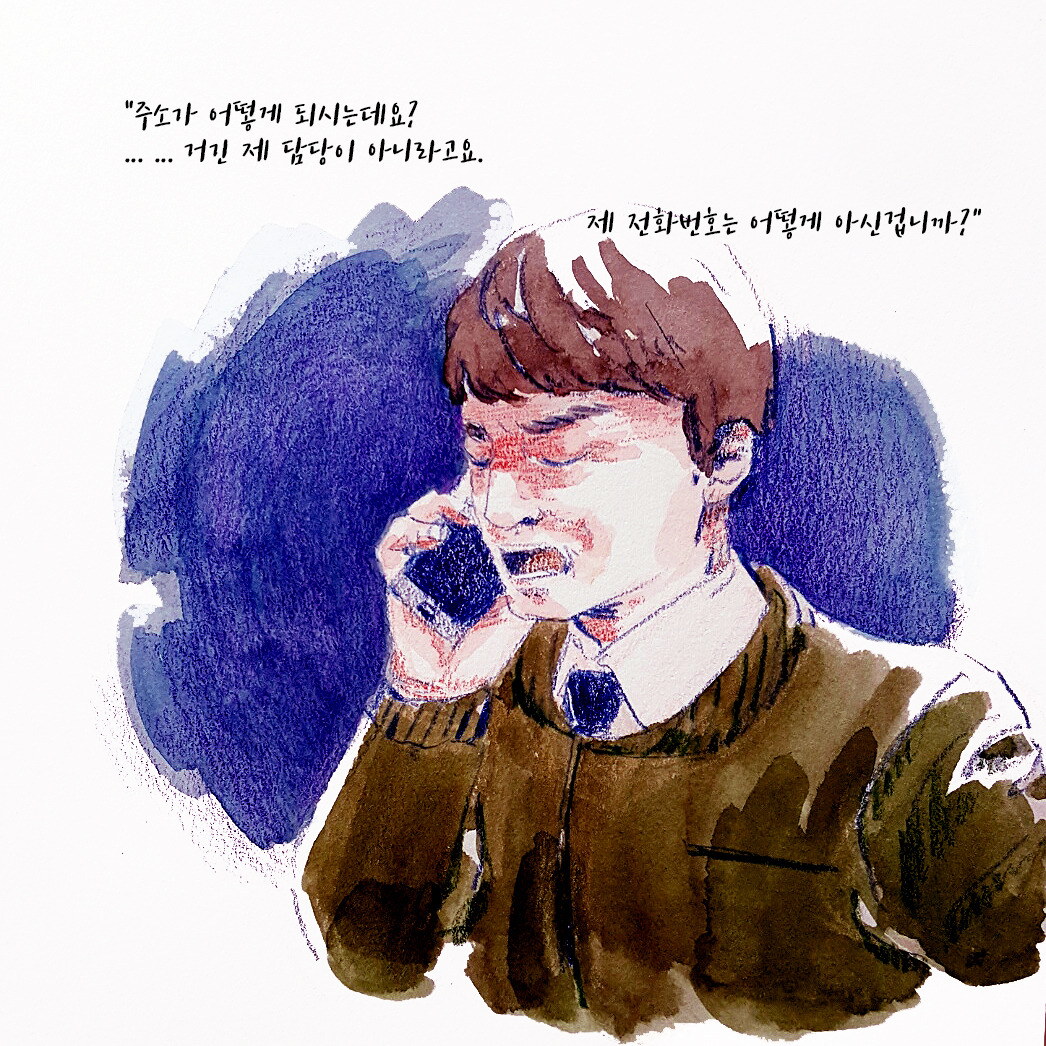 "주소가 어떻게 되시는데요?
... ... 거긴 제 담당이 아니라고요.
제 전화번호는 어떻게 아신겁니까?"